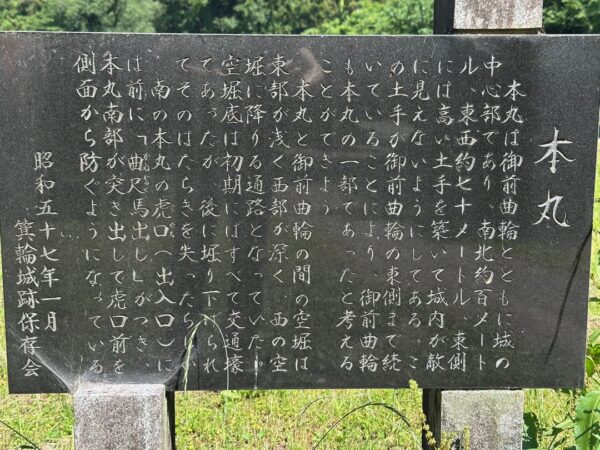 本丸
本丸は御前曲輪とともに城の
中心部であり、南北約百メート
ル、東西約七十メートル、東側
には高い土手を築いて城内が敵
に見えないようにしてある。こ
の土手が御前曲輪の東側まで続
いていることにより、御前曲輪
も本丸の一部であったと考える
ことができよう
本丸と御前曲輪の間の空堀は
東部が浅く西部が深く、西の空
堀に降りる通路となっていた。
空堀底は初期にはすべて交通壕
であったが、後に堀り下げられ
てそのはたらきを失ったらしい
南の本丸の虎口(出入口)に
は前に「曲尺馬出し」がつき、
本丸南部が突き出して虎口前を
側面から防ぐようになっている
昭和五十七年一月
箕輪城跡保存会